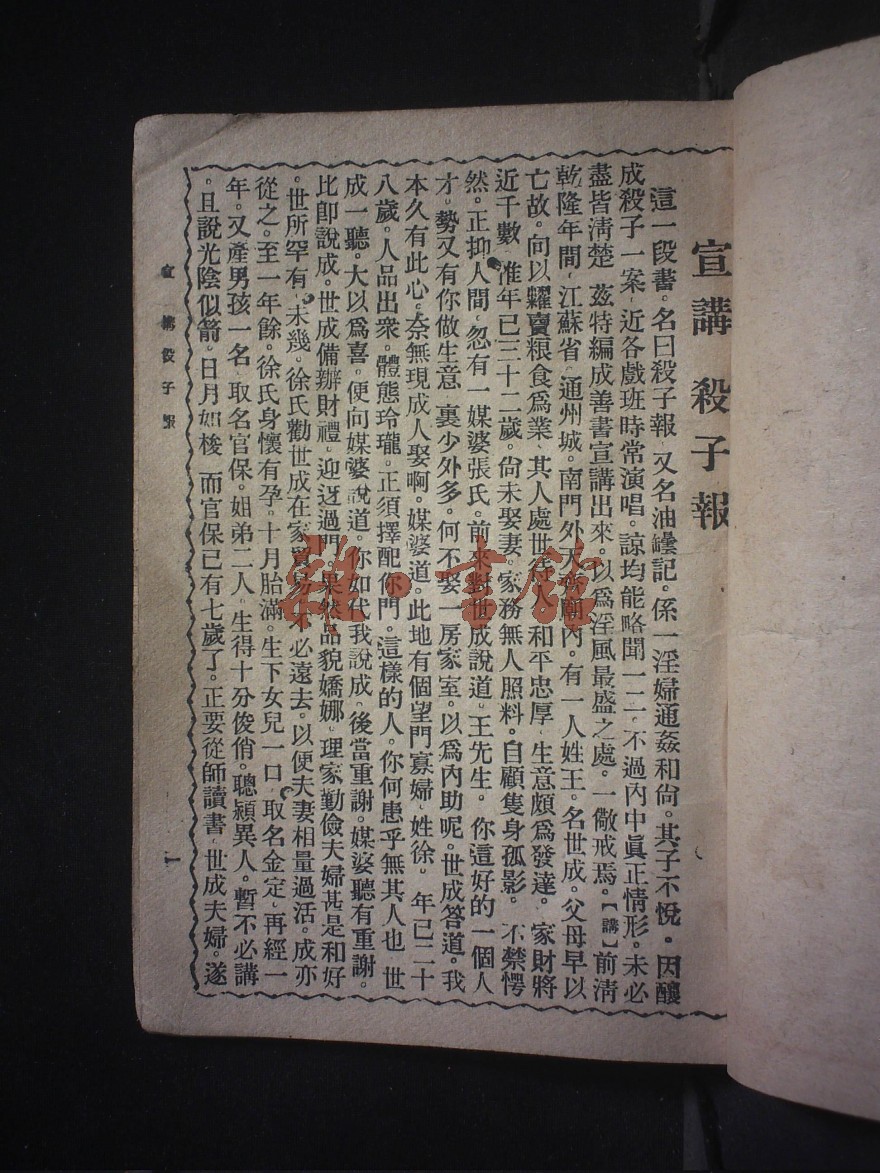 宣講殺子報
這一段書。名曰殺子報、又名油罎記。係一淫婦通姦和尙。其子不悅。因釀
成殺子一案、近各戲班時常演唱。諒均能略聞一二、不過內中眞正情形。未必
盡皆淸楚 茲特編成善書宣講出來。以爲淫風最盛之處。一儆戒焉。【講】前淸
乾隆年間、江蘇省、通州城。南門外天齊廟內。有一人姓王。名世成。父母早以
亡故。向以糶賣粮食爲業、其人處世待人、和平忠厚、生意頗爲發達。家財將
近千數、准年已三十二歲。尙未娶妻、家務無人照料。自顧隻身孤影。不禁愕
然。正抑人間、忽有一媒婆張氏。前來對世成說道。王先生。你這好的一個人
才。勢又有你做生意、裏少外多。何不娶一房家室。以爲內助呢。世成答道。我
本久有此心。奈無現成人娶啊。媒婆道、此地有個望門寡婦、姓徐、年已二十
八歲。人品出衆。體態玲瓏。正須擇配你門。這樣的人。你何患乎無其人也 世
成一聽。大以爲喜。便向媒婆說道。你如代我說成、後當重謝。媒婆聽有重謝。
比卽說成。世成備辦財禮。迎迓過門、果然品貌嬌娜、理家勤儉夫婦甚是和好
。世所罕有、未幾。徐氏勸世成在家貿易、不必遠去。以便夫妻相量過活。成亦
從之。至一年餘。徐氏身懷有孕。十月胎滿。生下女兒一口、取名金定、再經一
年。又產男孩一名、取名官保。姐弟二人、生得十分俊俏。聰穎異人。暫不必講
。且說光陰似箭。日月如梭、而官保已有七歲了。正要從師讀書、世成夫婦。遂
宣講殺子報
一
雜·書館